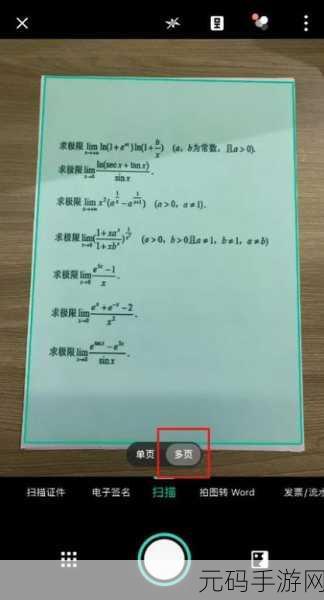 求极限 lim x→+∞ ln(1+e^{ax})ln(1+b/x) (a，b为常数，且a>0).
求极限 lim x→0 ln(sec x+tan x)/sin x.
求极限 lim x→+∞ x²(a^{1/x}-a^{1/(x+1)}) (a>0，a≠1).
求极限 lim x→0 ((1+xa^x)/(1+xb^x))^{1/x²} (a>0，b>0且a≠1，b≠1，a≠b)
求极限 lim x→0 (e^{5x}-1)/x.
求极限 lim x→0 (e^x+e^{-x}-2)/x².
求极限 lim x→0 /sin x.
单页 多页
扫描证件 电子签名 扫描 拍图转 Word 发票/流水
元码手游网